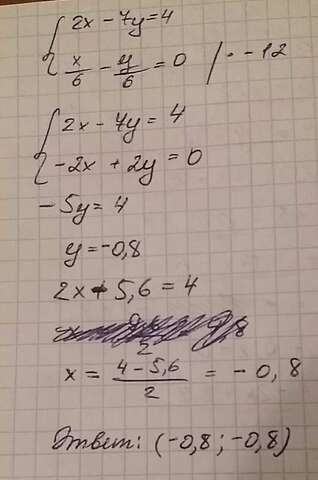 2x - 7y = 4
x/6 - y/6 = 0 | · -12
2x - 7y = 4
-2x + 2y = 0
-5y = 4
y = -0,8
2x + 5,6 = 4
x = (4 - 5,6)/2 = -0,8
Ответ: (-0,8; -0,8)